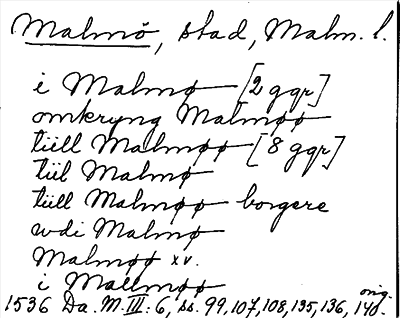 Malmö, stad, Malm. l.
i Malmø [2 ggr]
omkryng Malmøø
tiill Malmøø [8 ggr]
tiil Malmø
tiill Malmøø borgere
wdi Malmø
Malmøø xv.
i Mallmøø
1536 Da. M. III: 6, ss. 99, 107, 108, 135, 136, 140. orig.